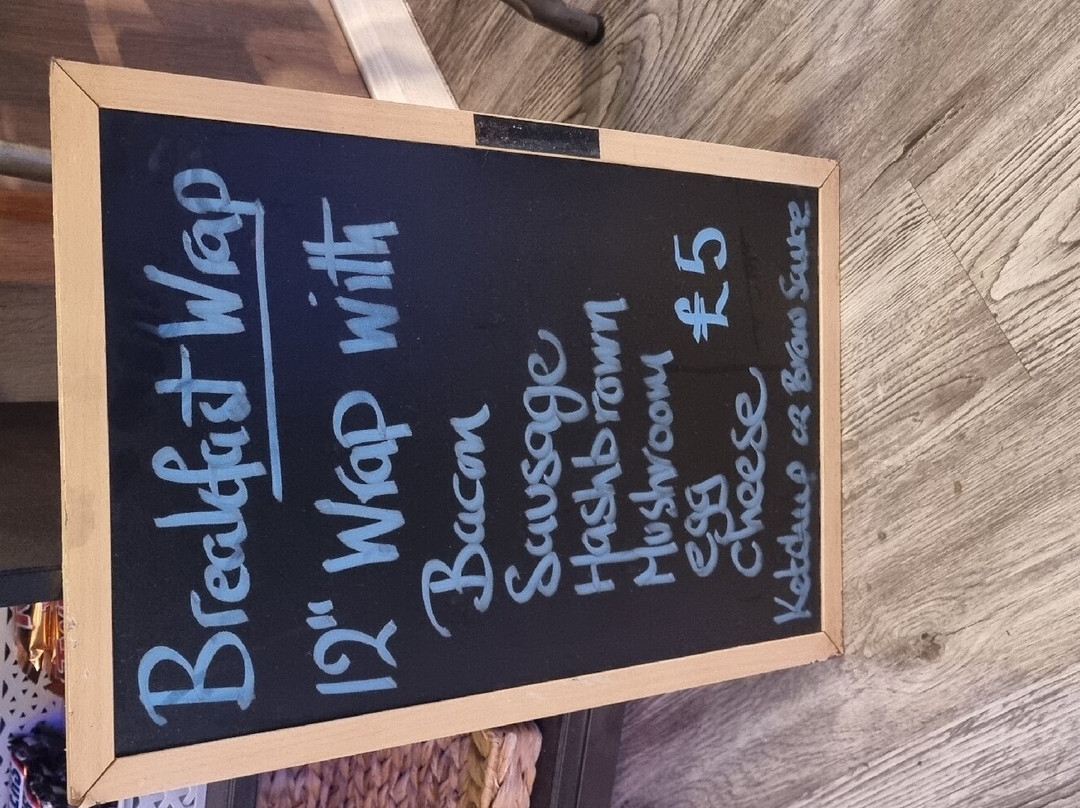 Breakfast Wrap
12" Wrap with
Bacon
Sausage
Hashbrown
Mushroom
egg £5
cheese
Ketchup or Brown Sauce